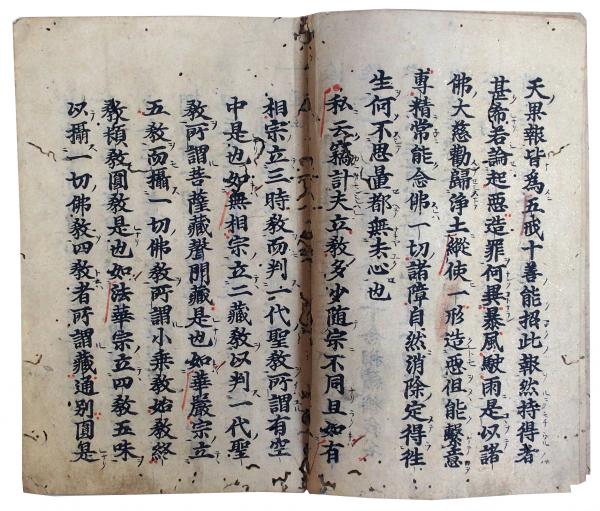 天果報皆為五戒十善能招此報然持得者
甚希若論起惡造罪何異暴風駛雨是以諸
佛大慈勸歸淨土縱使一形造惡但能繫意
專精常能念佛一切諸障自然消除定得往
生何不思量都無去心也
私云竊計夫立教多少隨宗不同且如有
相宗立三時教而判一代聖教所謂有空
中是也如無相宗立二藏教以判一代聖
教所謂菩薩藏聲聞藏是也如華嚴宗立
五教而攝一切佛教所謂小乘教始教終
教頓教圓教是也如法華宗立四教五味
以攝一切佛教四教者所謂藏通別圓是